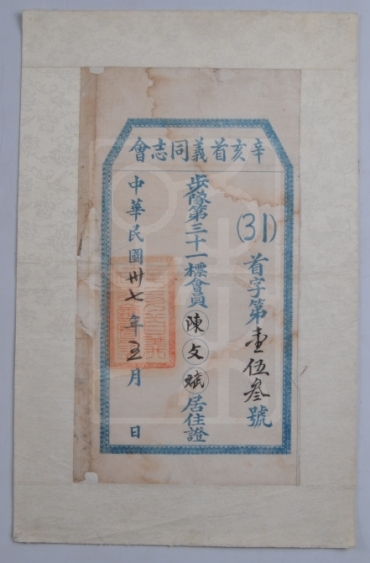 辛亥首義同志會
(31)
首字第壹伍叁號
步隊第三十一標會員陳文斌居住證
中華民國卅七年五月 日